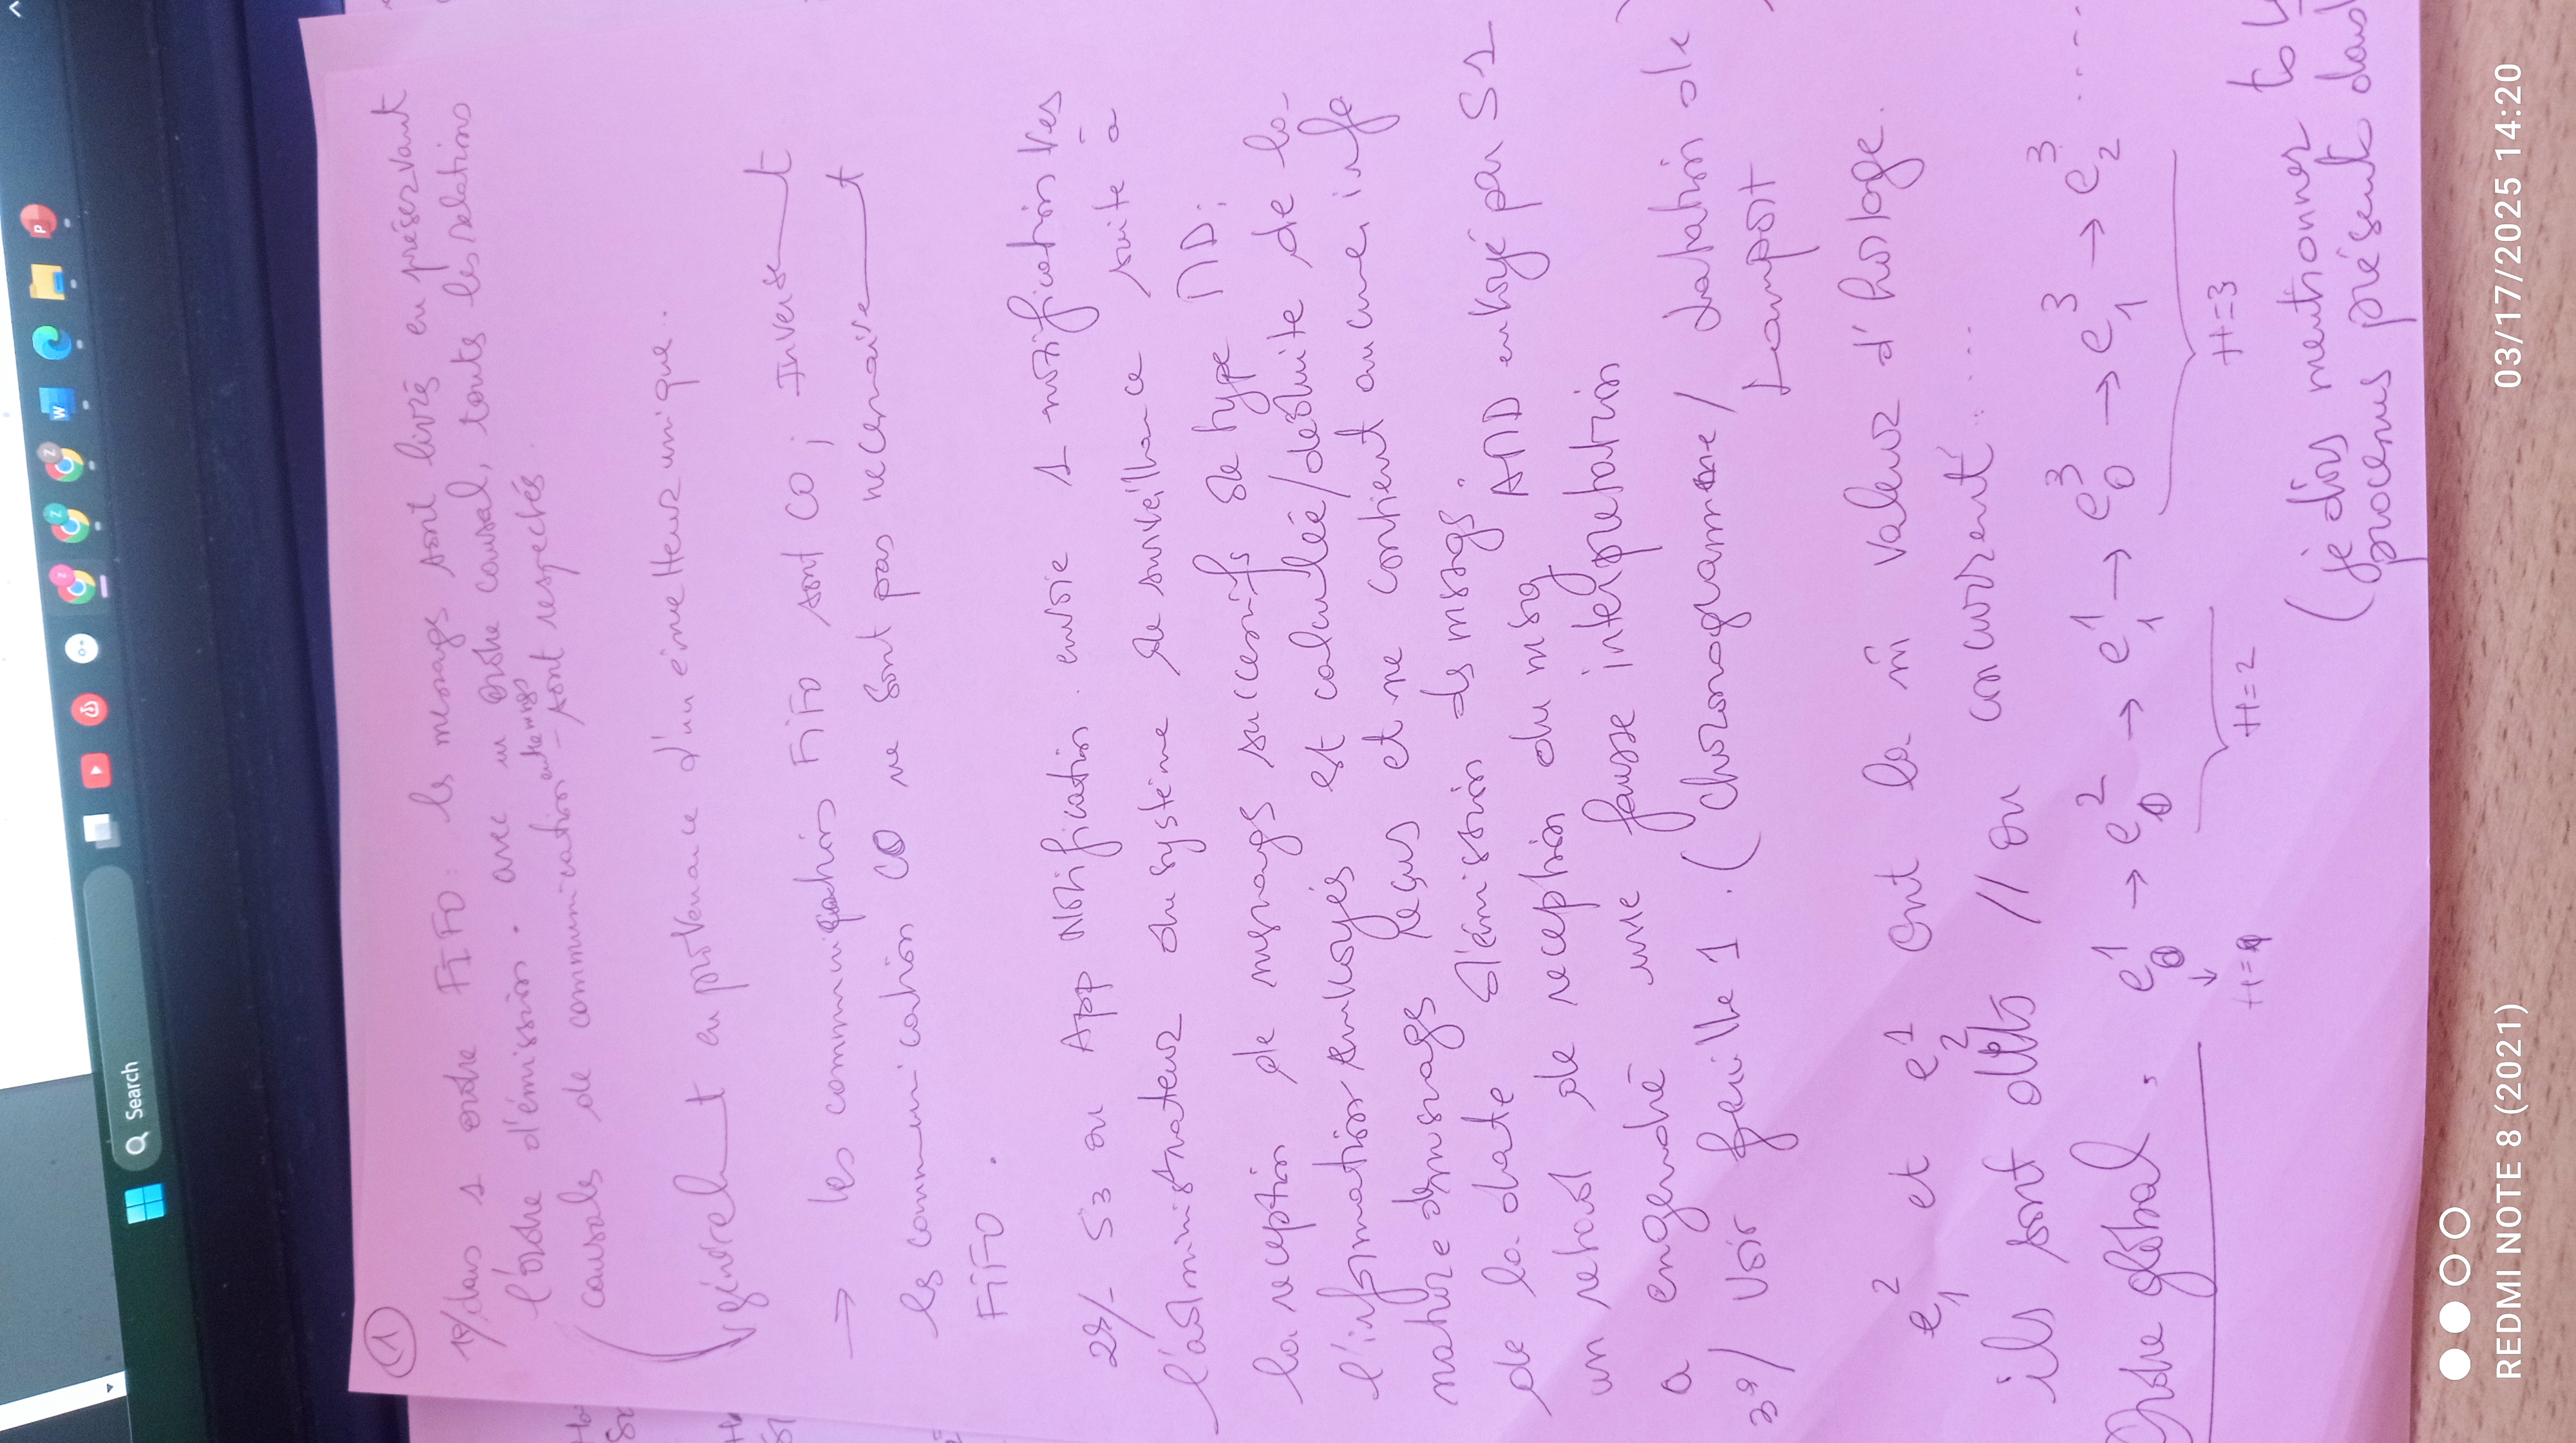 Search
1
1º/ dans 1 ordre FIFO : les messages sont livrés en préservant
l'ordre d'émission. avec un ordre causal, touts les relations
causals de communication entre msgs sont respectés.
généralmt en provenance d'un émetteur unique.
→ les communications FiFO sont CO ; Inversemt
les communication CO ne sont pas necessairemt
FiFO.
2º/- S3 ou App Notification envoie 1 notification vers
l'administrateur du système de surveillance suite à
la reception de messages successifs de type MD ;
l'information envoyés est calculée/déduite de la
nature ds messages reçus et ne contient aucune info
de la date d'émission ds msgs.
un retard de reception du msg AMD envoyé par S1
a engendré une fausse interpretation
3º/ Voir feuille 1. (Chronogramme / datation de
Lamport )
e₁² et e₂¹ ont la m̂ valeur d'horloge.
ils sont dits // ou concurrent....
Ordre global. e₀¹ → e₀² → e₁¹ → e₀³ → e₁³ → e₂³ .....
H=1 H=2 H=3
(je dois mentionner ts
processus présents dans
REDMI NOTE 8 (2021)
03/17/2025 14:20